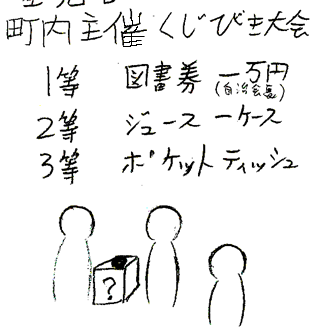 町内主催くじびき大会
1等 図書券 一万円
(自治会長)
2等 ジュース一ケース
3等 ポケットティッシュ
?